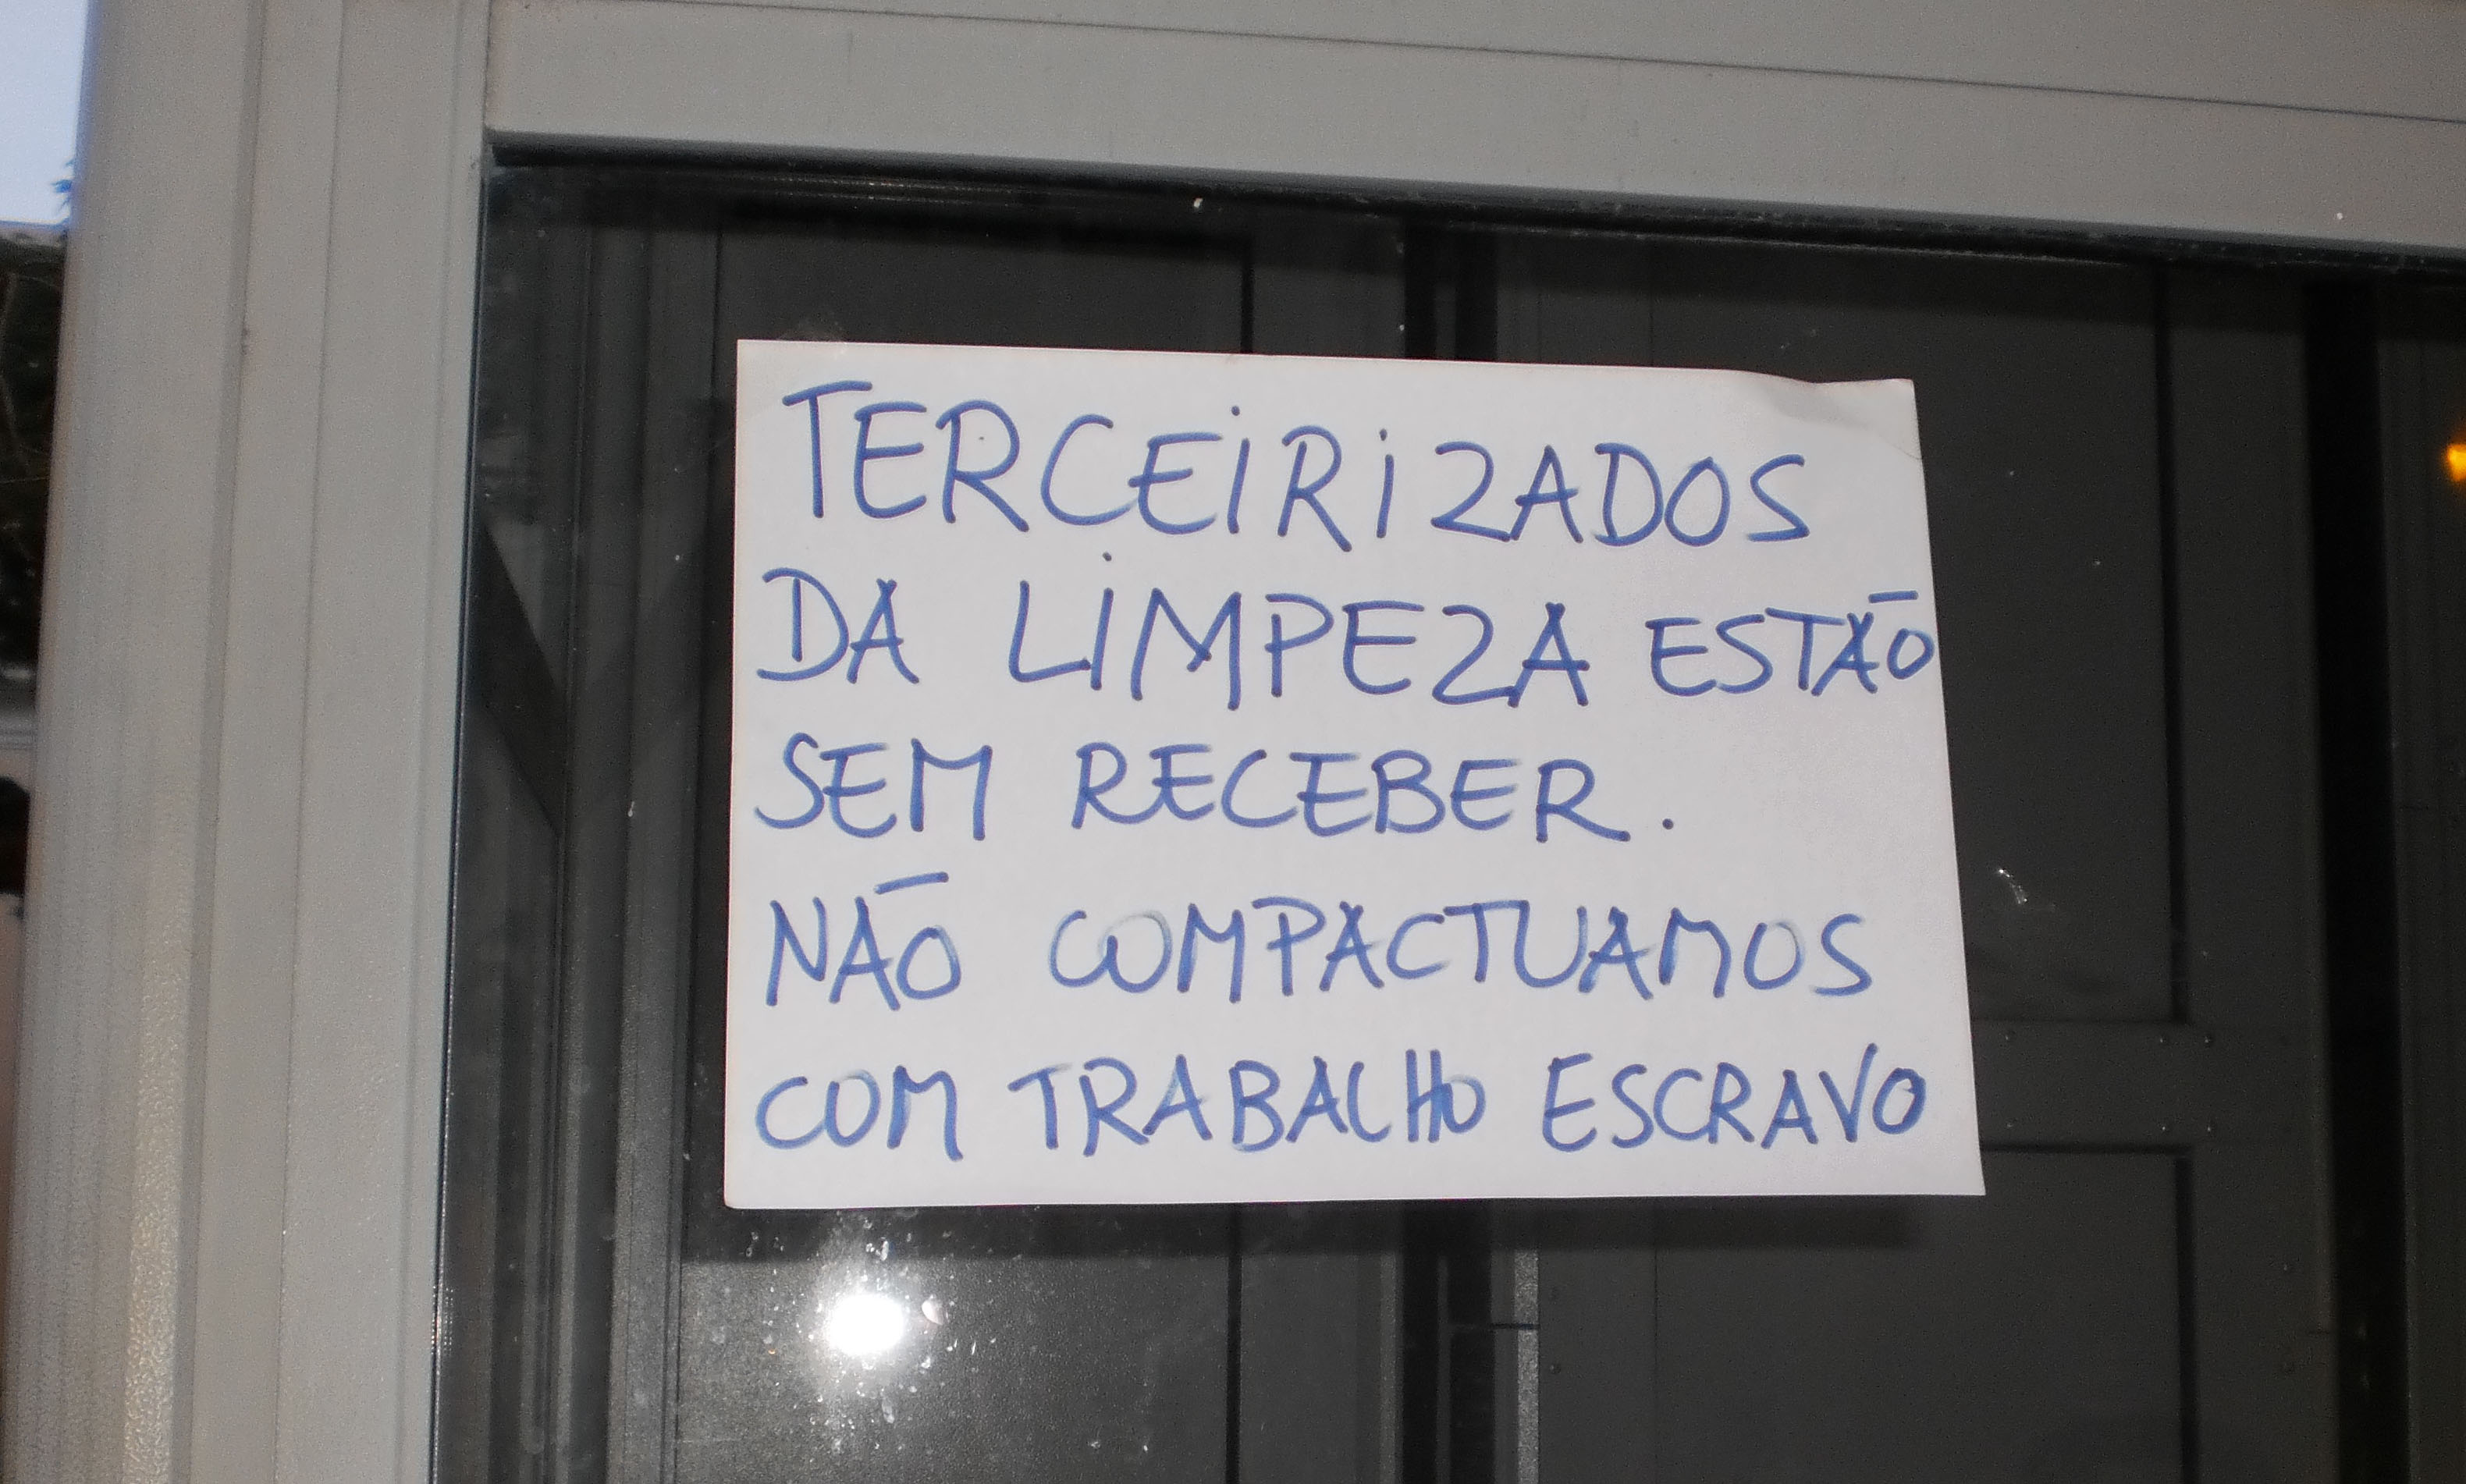 TERCEIRIZADOS
DA LIMPEZA ESTÃO
SEM RECEBER.
NÃO COMPACTUAMOS
COM TRABALHO ESCRAVO